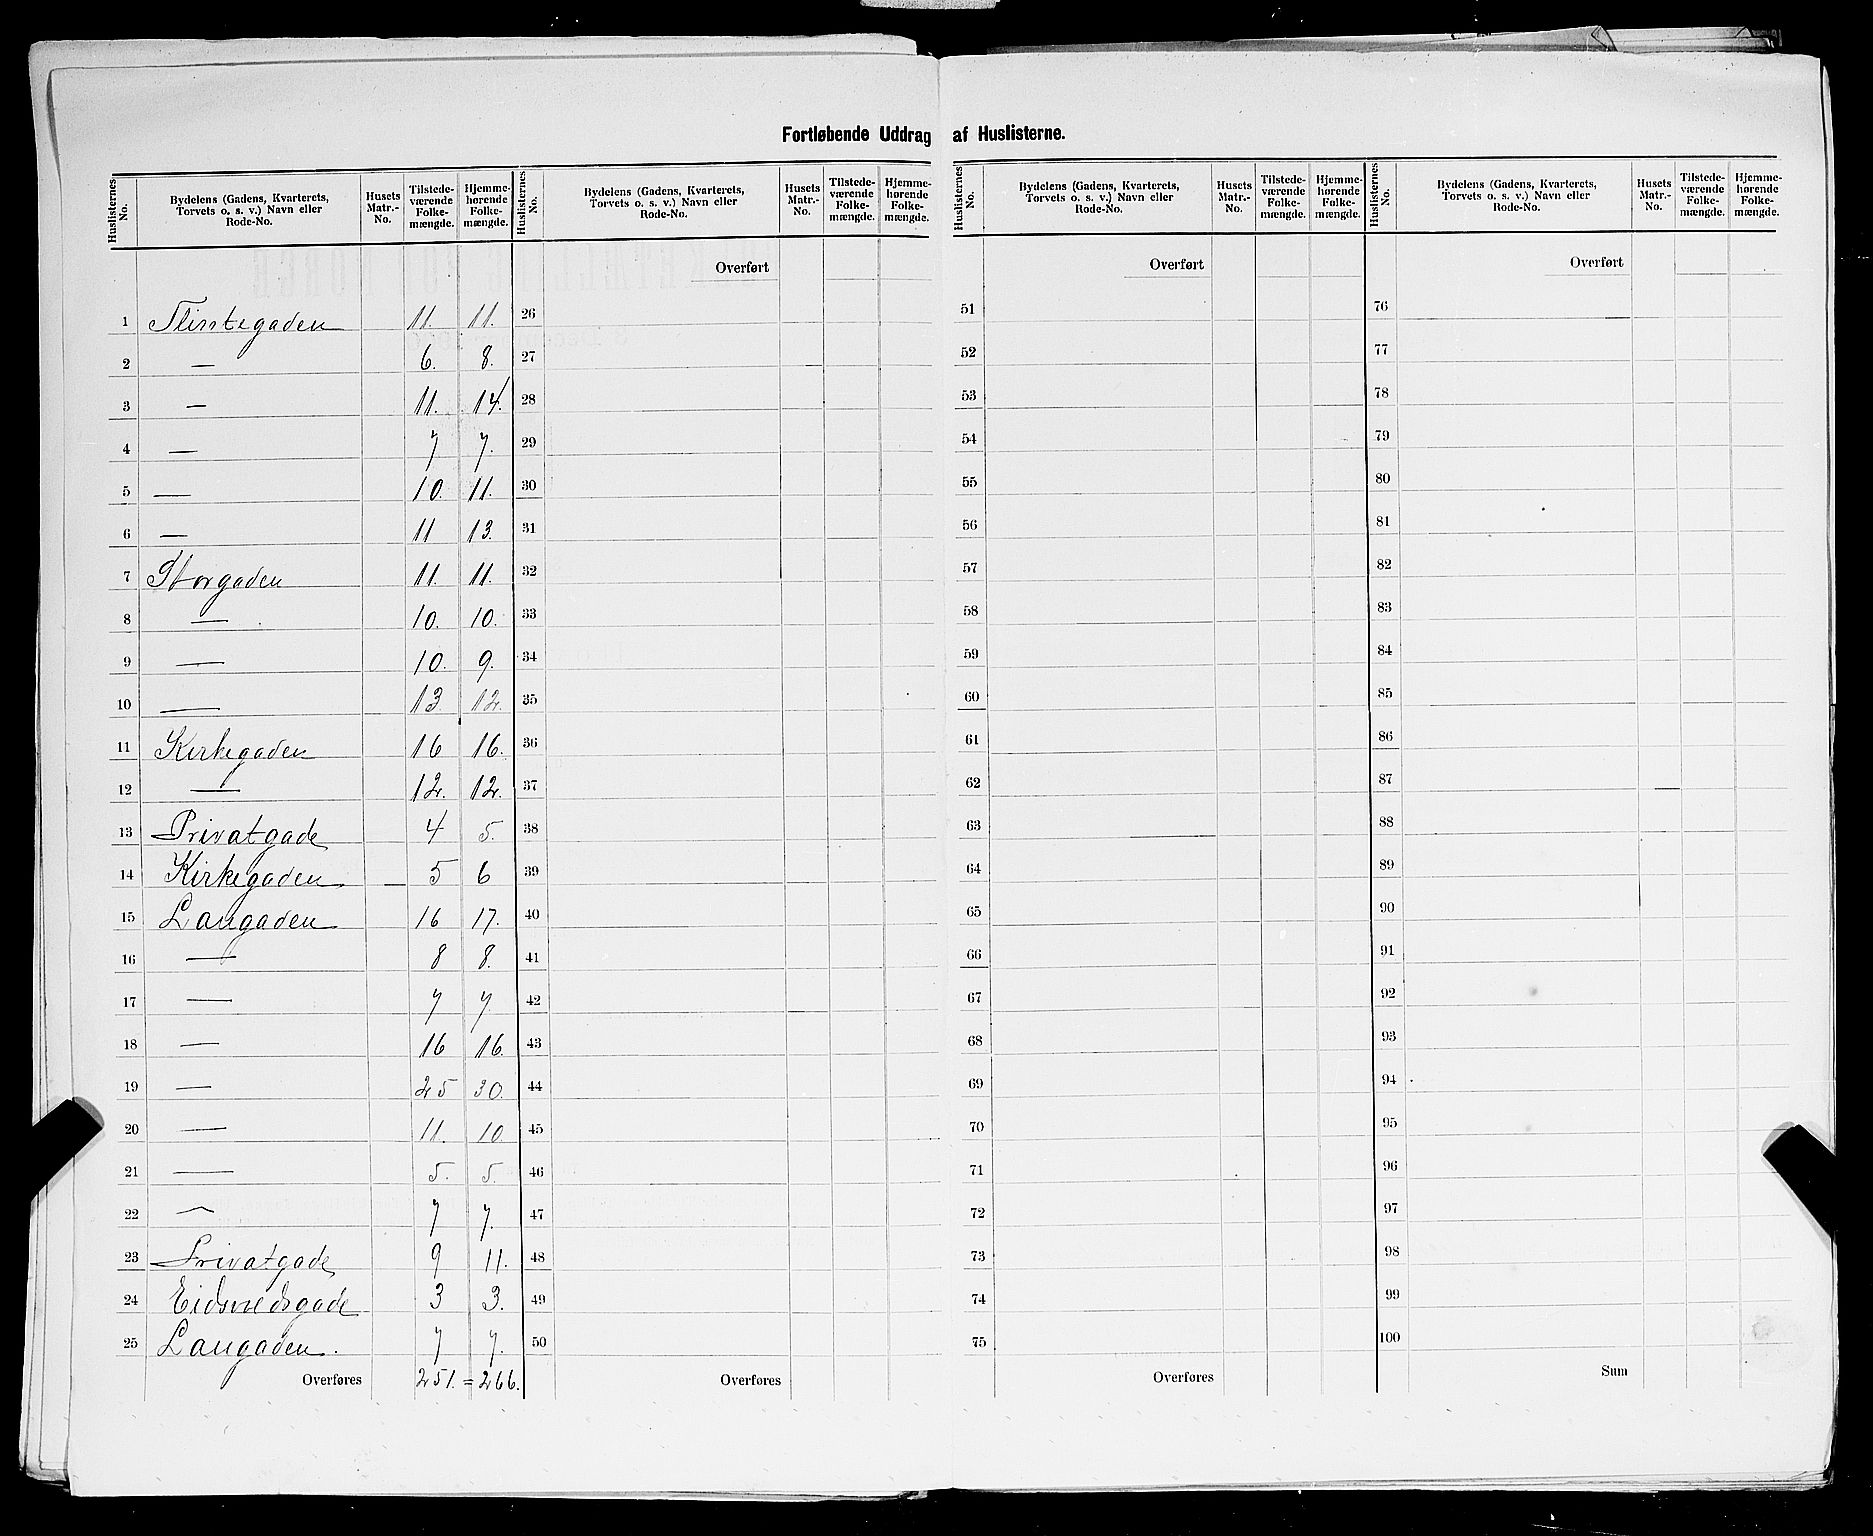 Fortløbende Uddrag af Huslisterne.
Huslisternes No. Bydelens (Gadens, Kvarterets, Torvets o. s. v.) Navn eller Rode-No. Husets Matr.-No. Tilstedeværende Folkemængde. Hjemmehørende Folkemængde.
1 Flintegaden 11. 11.
2 — 6. 8.
3 — 11. 14.
4 — 7 7.
5 — 10. 11.
6 — 11 13.
7 Storgaden 11. 11.
8 — 10. 10.
9 — 10. 9.
10 — 13. 12.
11 Kirkegaden 16 16.
12 — 12. 12.
13 Privatgade 4 5.
14 Kirkegaden — 5 6
15 Langaden 16 17.
16 — 8 8.
17 — 7 7.
18 — 16 16.
19 — 25 30.
20 — 11. 10
21 — 5. 5.
22 — 7 7.
23 Privatgade 9 11.
24 Eidsvedsgade 3 3.
25 Langaden. 7 7.
Overføres 251. = 266.
Huslisternes No. Bydelens (Gadens, Kvarterets, Torvets o. s. v.) Navn eller Rode-No. Husets Matr.-No. Tilstedeværende Folkemængde. Hjemmehørende Folkemængde.
Overført
26
27
28
29
30
31
32
33
34
35
36
37
38
39
40
41
42
43
44
45
46
47
48
49
50
Overføres
Huslisternes No. Bydelens (Gadens, Kvarterets, Torvets o. s. v.) Navn eller Rode-No. Husets Matr.-No. Tilstedeværende Folkemængde. Hjemmehørende Folkemængde.
Overført
51
52
53
54
55
56
57
58
59
60
61
62
63
64
65
66
67
68
69
70
71
72
73
74
75
Overføres
Huslisternes No. Bydelens (Gadens, Kvarterets, Torvets o. s. v.) Navn eller Rode-No. Husets Matr.-No. Tilstedeværende Folkemængde. Hjemmehørende Folkemængde.
Overført
76
77
78
79
80
81
82
83
84
85
86
87
88
89
90
91
92
93
94
95
96
97
98
99
100
Sum